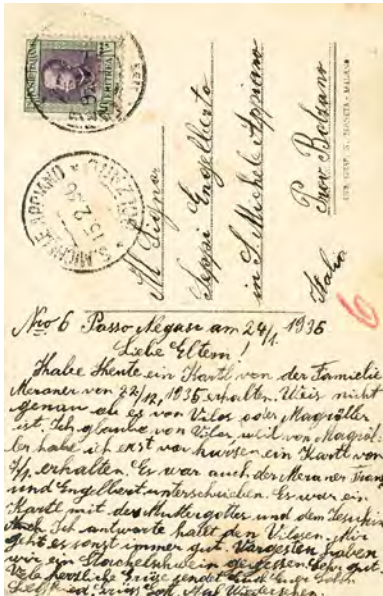 POSTE ITALIANE
ERITREA
S. MICHELE APPIANO
BOLZANO
15.2.36
Al Signor
Seppi Engelberto
in S. Michele Appiano
Prov Bolzano
Italia
6
Nro 6 Passo Negasc am 24/1. 1936
Liebe Eltern!
Habe Heute ein Kartl von der Familie
Meraner von 22/12, 1935 erhalten. Weis nicht
genau ob es von Vilas oder Magröller
ist. Ich glaube von Vilar, weil von Magröl-
ler habe ich erst vor kurzen ein Kartl von
erhalten. Es war auch der Meraner Franz
und Engelbert unterschrieben. Es war ein
Kartl mit der Muttergottes und dem Jesukin
Ich antworte halt den Vilasen. Mir
geht es sonst immer gut. Vorgesten haben
wir ein Stachelschwein gegessen. Sehr gut.
Viele herzliche Grüse sendet Euch Euer Sohn
Gott. Auf Wiedersehen.